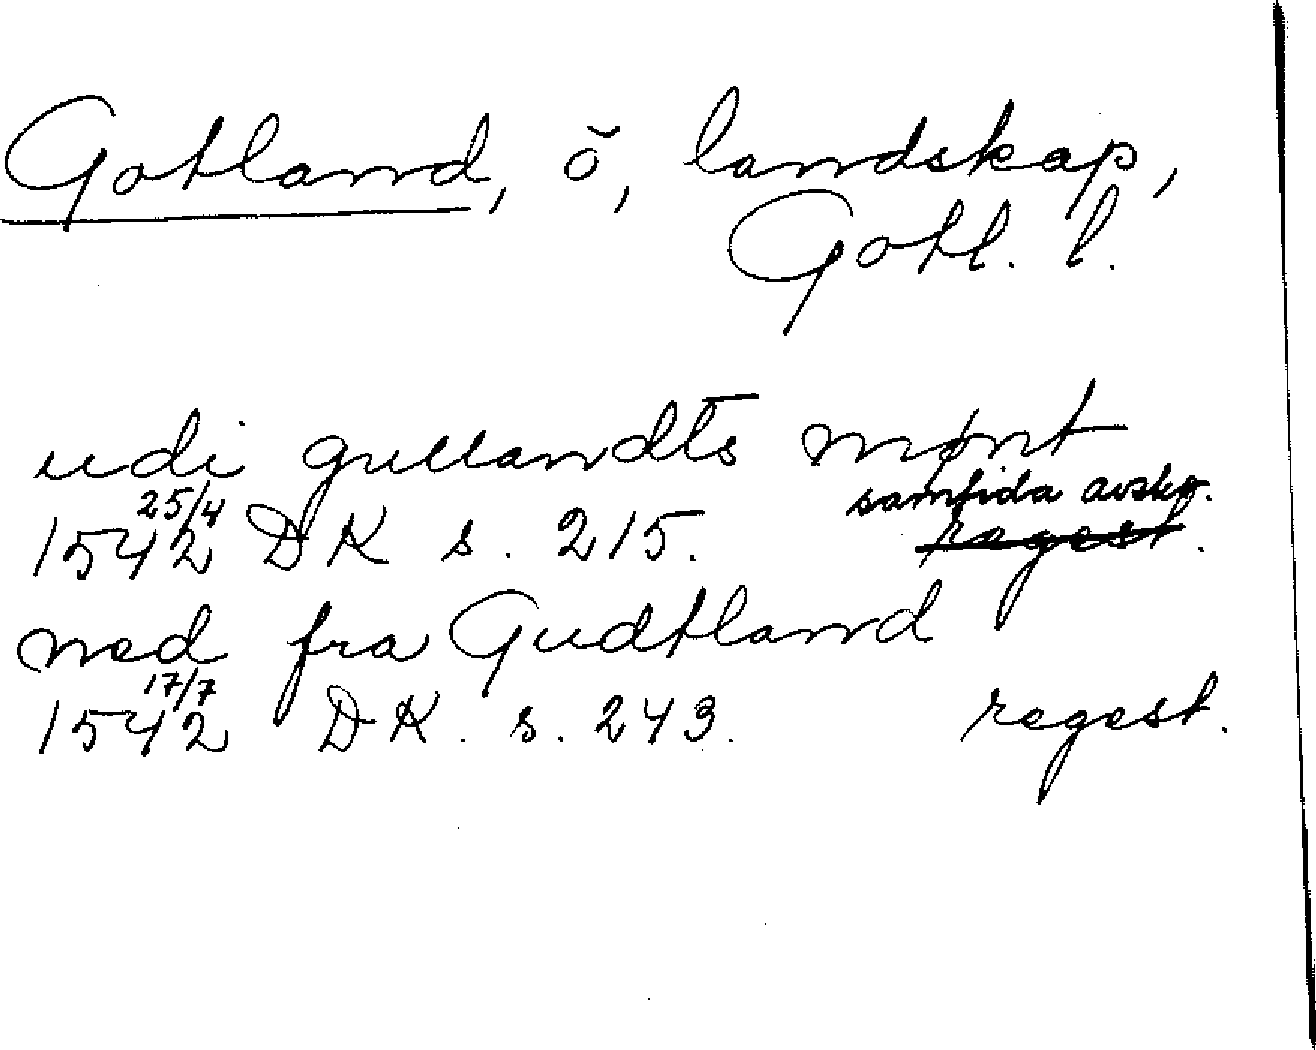 Gotland, ö, landskap,
Gotl. l.
udi gullandts mønt
samtida avskr.
1542 25/4 DK s. 215. regest.
ned fra Gudtland
1542 17/7 DK. s. 243. regest.